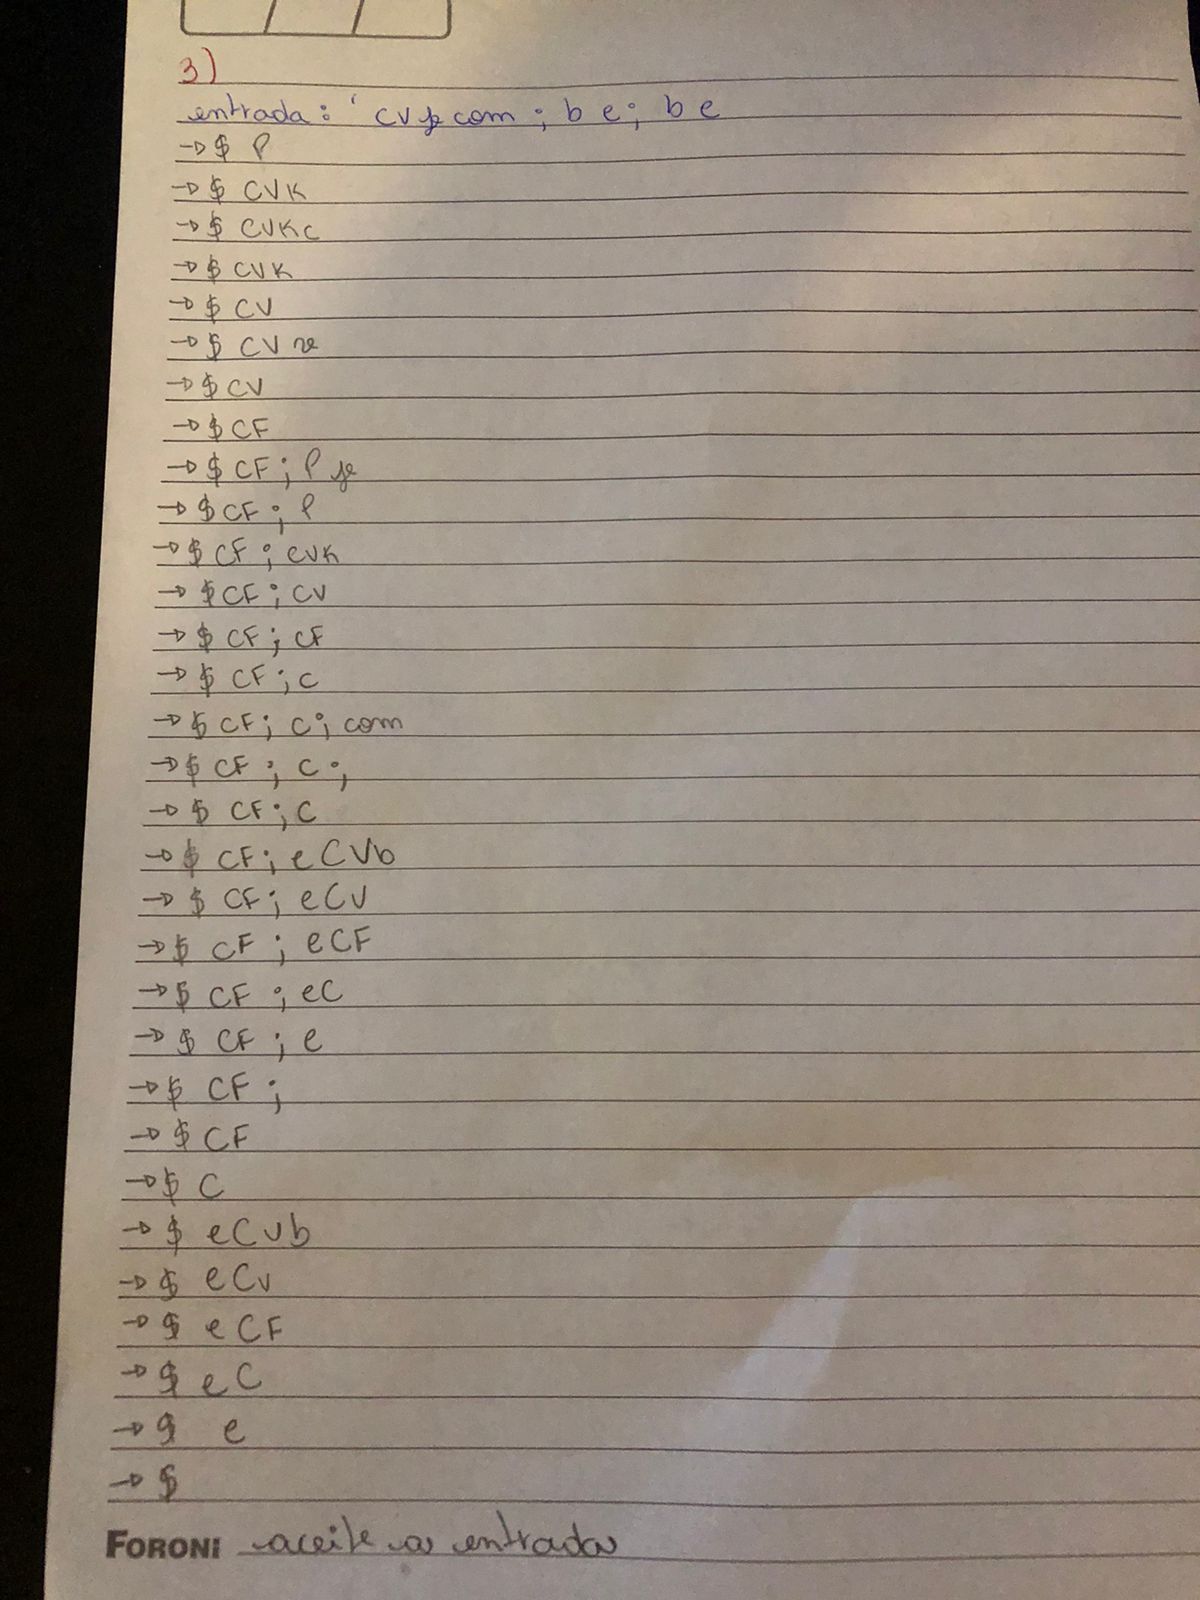 3)
entrada: ' cvp com ; b e; b e
→ $ P
→ $ CVK
→ $ CVKc
→ $ CVK
→ $ CV
→ $ CV v
→ $ CV
→ $ CF
→ $ CF ; P p
→ $ CF ; P
→ $ CF ; CVK
→ $ CF ; CV
→ $ CF ; CF
→ $ CF ; C
→ $ CF ; C ; com
→ $ CF ; C ;
→ $ CF ; C
→ $ CF ; e CVb
→ $ CF ; e CV
→ $ CF ; e CF
→ $ CF ; e C
→ $ CF ; e
→ $ CF ;
→ $ CF
→ $ C
→ $ e CVb
→ $ e CV
→ $ e CF
→ $ e C
→ $ e
→ $
FORONI aceite a entrada